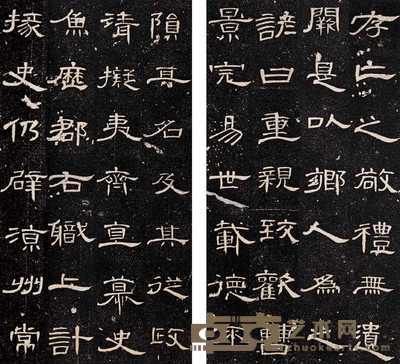 存亡之敬禮無遺
闕是以鄉人為之
諺曰重親致歡曹
景完易世載德不
隕其名及其從政
清擬夷齊直慕史
魚歷郡右職上計
掾史仍辟涼州常
艺术网